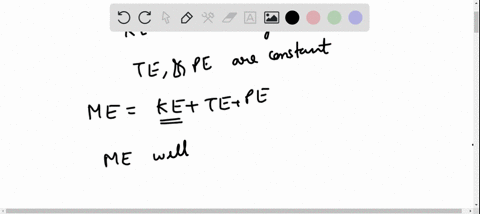 KE
TE, & PE are constant
ME = KE + TE + PE
ME will